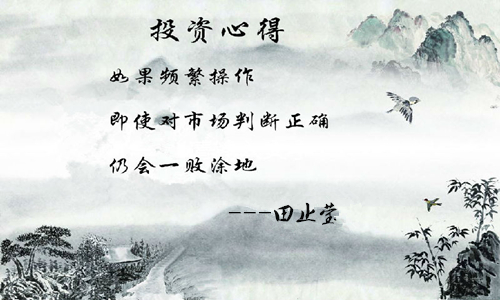 投资心得
如果频繁操作
即使对市场判断正确
仍会一败涂地
---田止莹